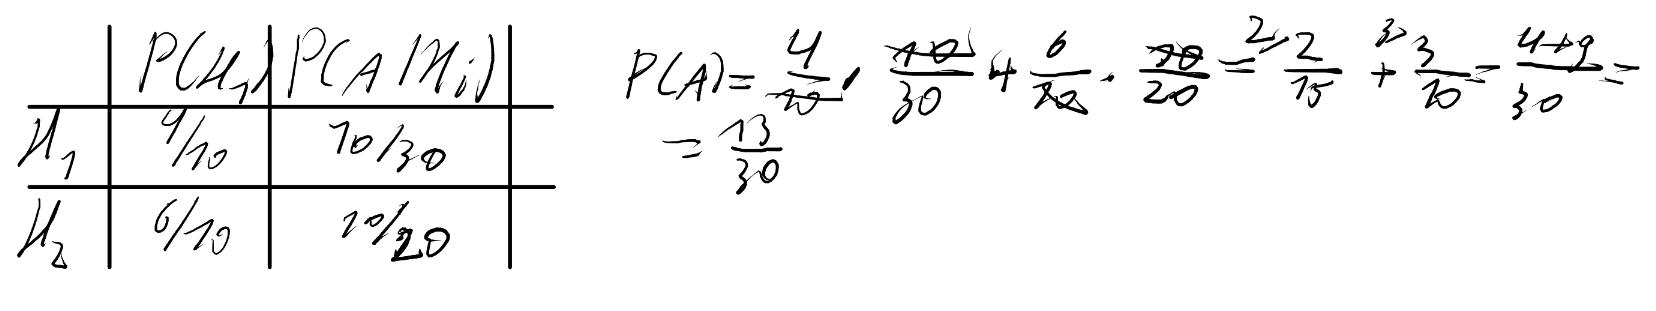 P(H₁) P(A/Hᵢ)
H₁ 4/10 10/30
H₂ 6/10 10/20
P(A) = 4/10 · 10/30 + 6/10 · 10/20 = ²⁾2/15 + ³⁾3/10 = 4+9/30 =
= 13/30